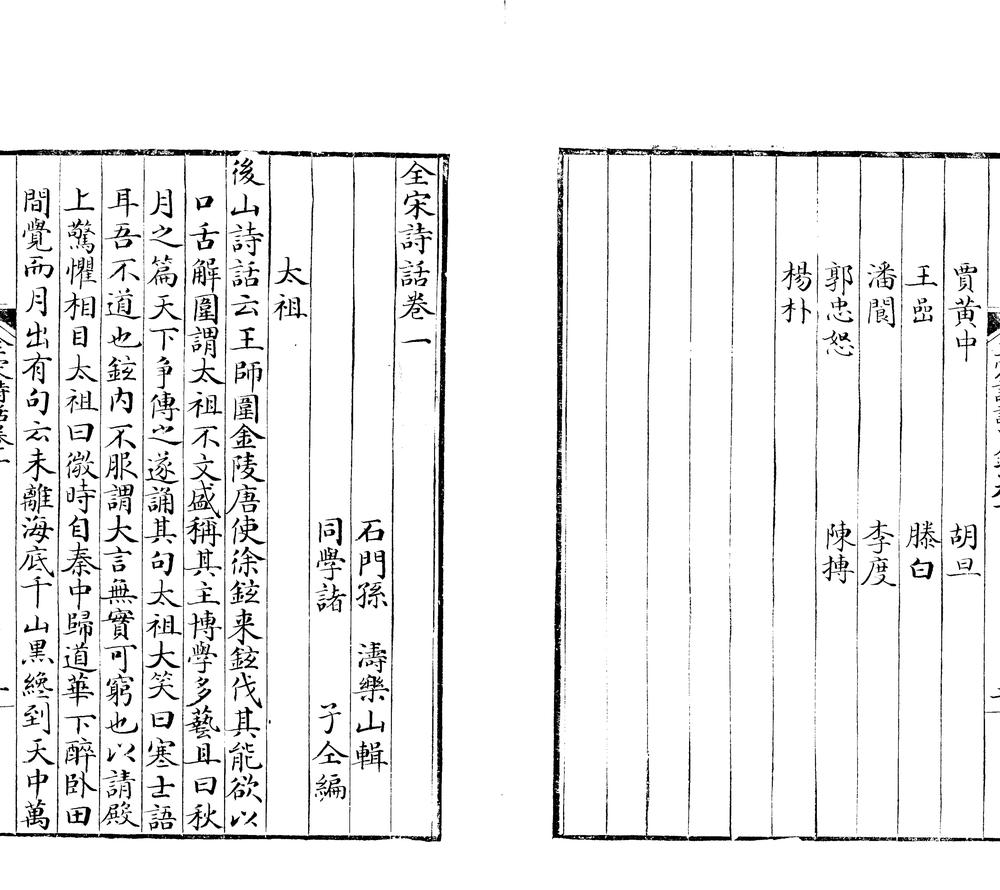 賈黃中　胡旦
王嵒　滕白
潘閬　李度
郭忠恕　陳摶
楊朴
全宋詩話卷一
石門孫　濤樂山輯
同學諸　子仝編
太祖
後山詩話云王師圍金陵唐使徐鉉来鉉伐其能欲以
口舌解圍謂太祖不文盛稱其主博學多藝且曰秋
月之篇天下争傳之遂誦其句太祖大笑曰寒士語
耳吾不道也鉉内不服謂大言無實可窮也以請殿
上驚懼相目太祖曰微時自秦中歸道華下醉卧田
間覺而月出有句云未離海底千山黒纔到天中萬
全宋詩話卷一